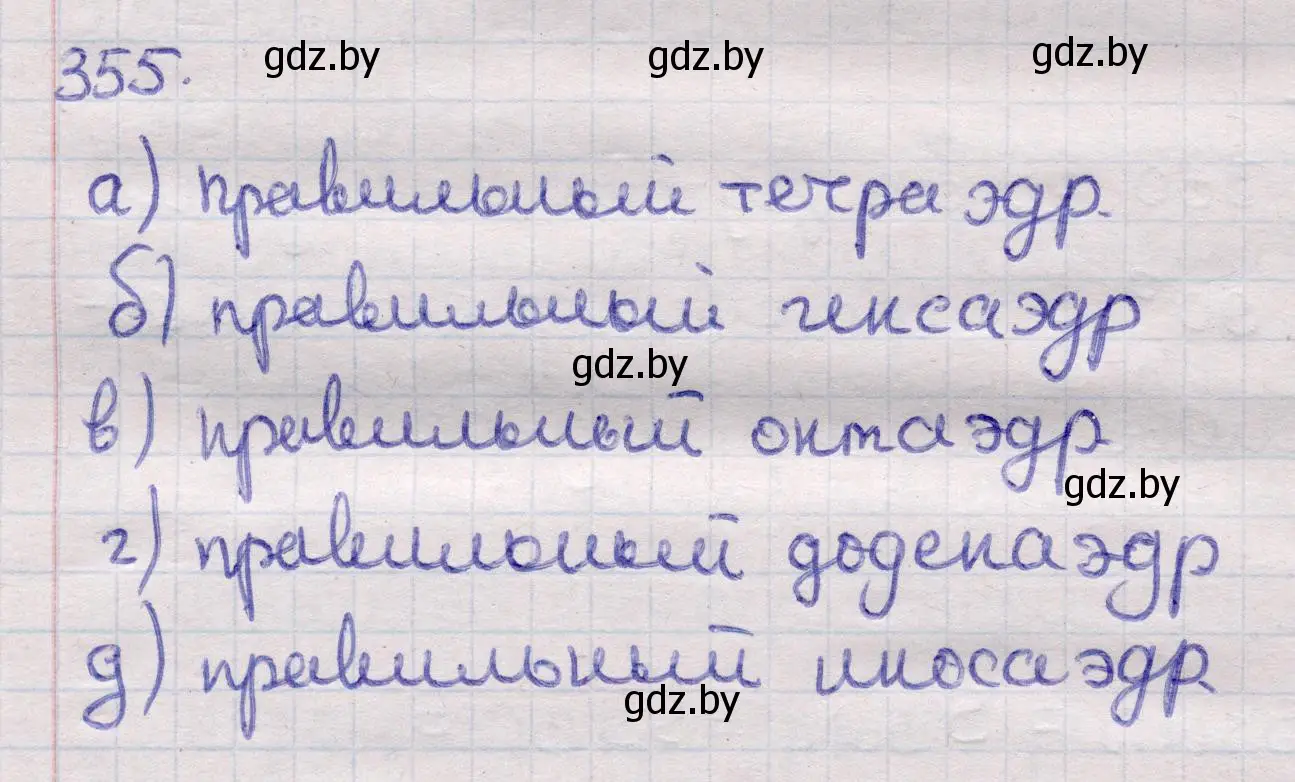 355. gdz.by gdz.by gdz.by
а) правильный тетраэдр.
б) правильный гексаэдр
gdz.by
в) правильный октаэдр.
gdz.by
г) правильный додекаэдр
д) правильный икосаэдр.
gdz.by